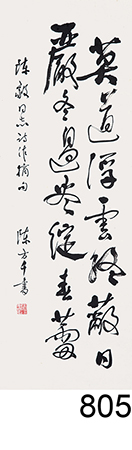 莫道浮雲終蔽日
嚴冬過盡綻春蕾
陳毅同志詩作摘句
陳方午書
805